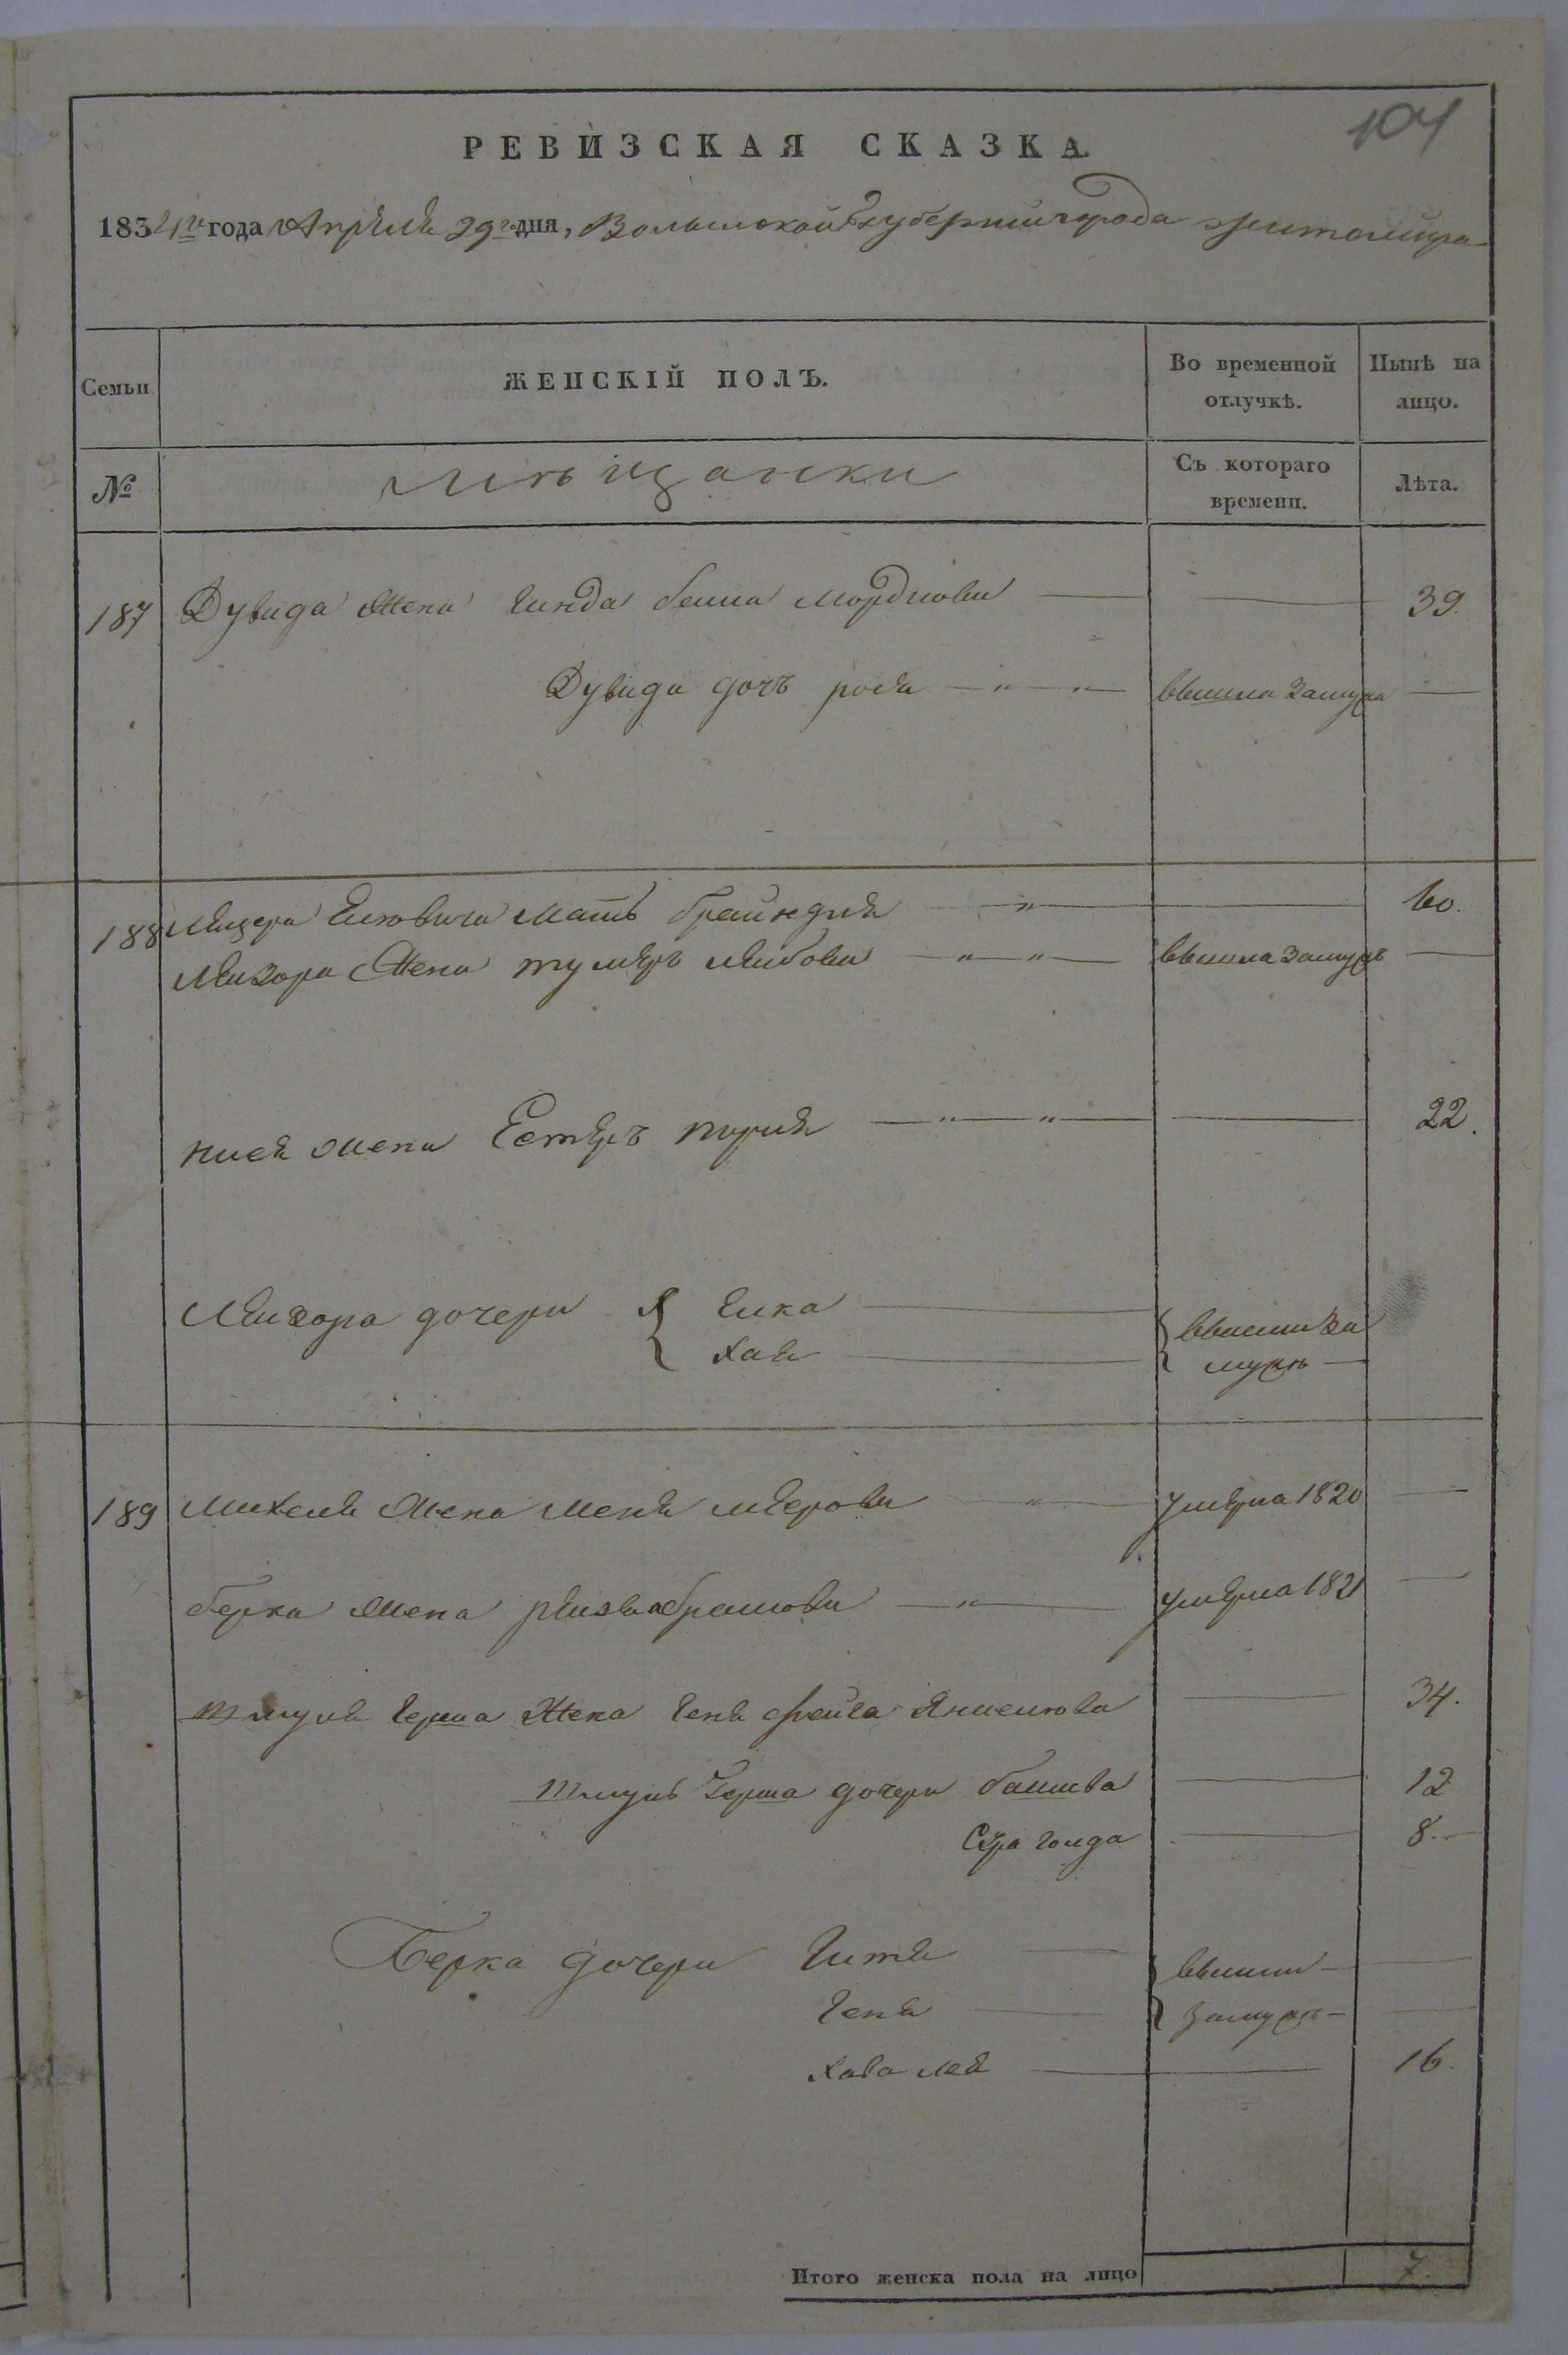 104
РЕВИЗСКАЯ СКАЗКА.
1834го года Апреля 29го дня, Волынской Губернии города Житомира
Семьи
ЖЕНСКІЙ ПОЛЪ.
Во временной отлучкѣ.
Нынѣ на лицо.
№
Мѣщанки
Съ котораго времени.
Лѣта.
187 Дувида Жена Гинда бейла Мордкова 39.
Дувида дочь рося вышла замужъ
188 Лейзера Мать брайндля 60.
Лейзора Жена Лейбова вышла замужъ
жена Естеръ 22.
Лейзора дочери { Элка
Хая } вышли за мужъ
189 Михеля Жена Меня Меерова умерла 1820
берка Жена рейза абрамова умерла 1821
Шмуля герша Жена геня фейга Янкелова 34.
Шмуля Герша дочери башева 12
Сура голда 8.
Берка дочери Гитля
геня } вышли замужъ
Хава лея 16.
Итого женска пола на лицо 7.